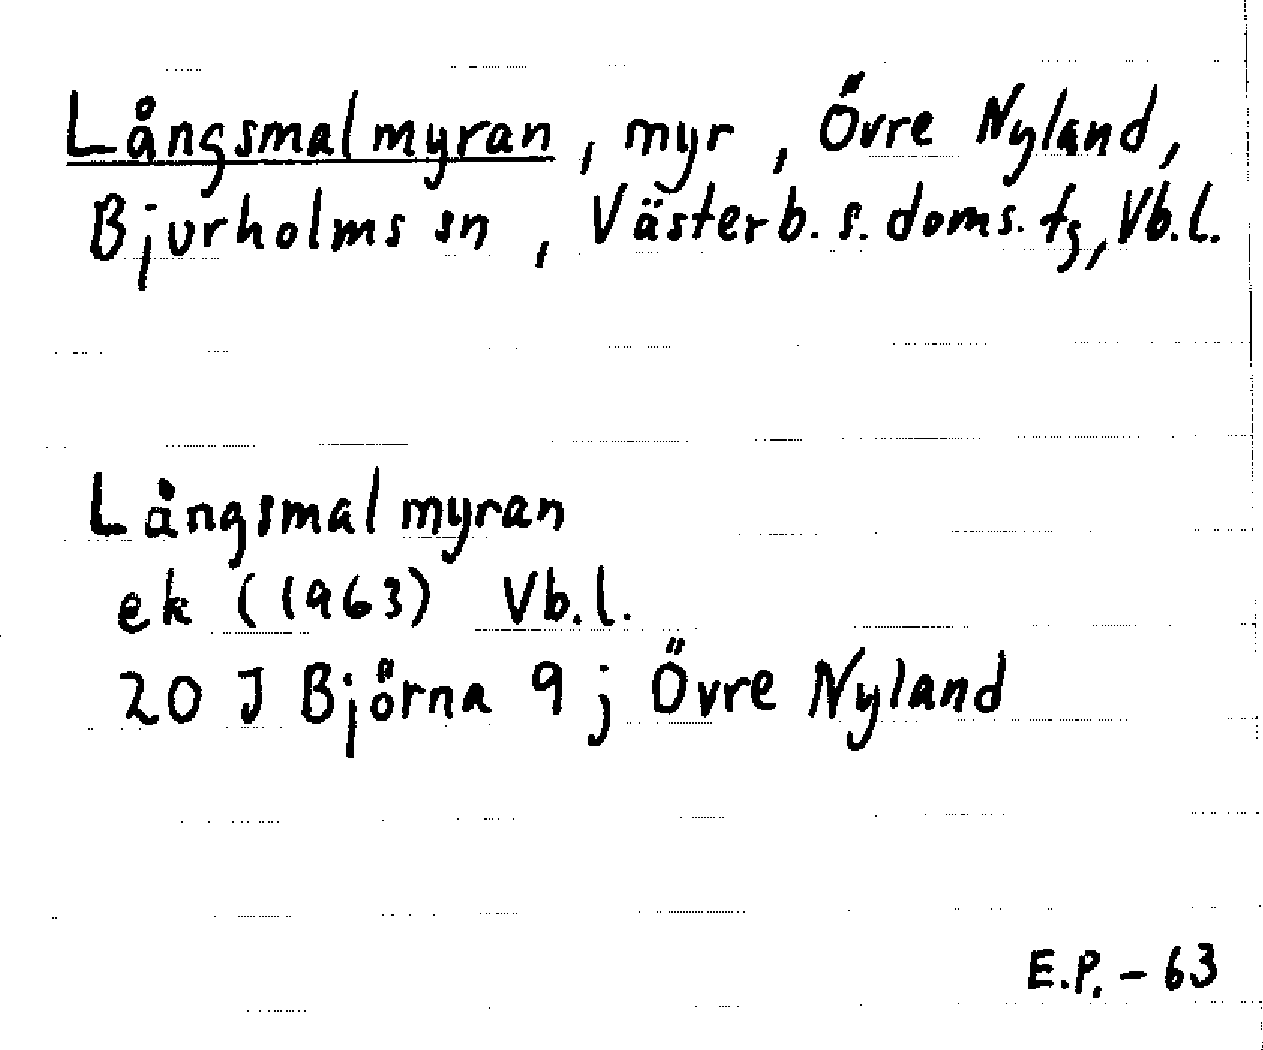 Långsmalmyran, myr, Övre Nyland,
Bjurholms sn, Västerb. s. doms. tg, Vb.l.
Långsmalmyran
ek (1963) Vb.l.
20 J Björna 9 j Övre Nyland
E.P. – 63